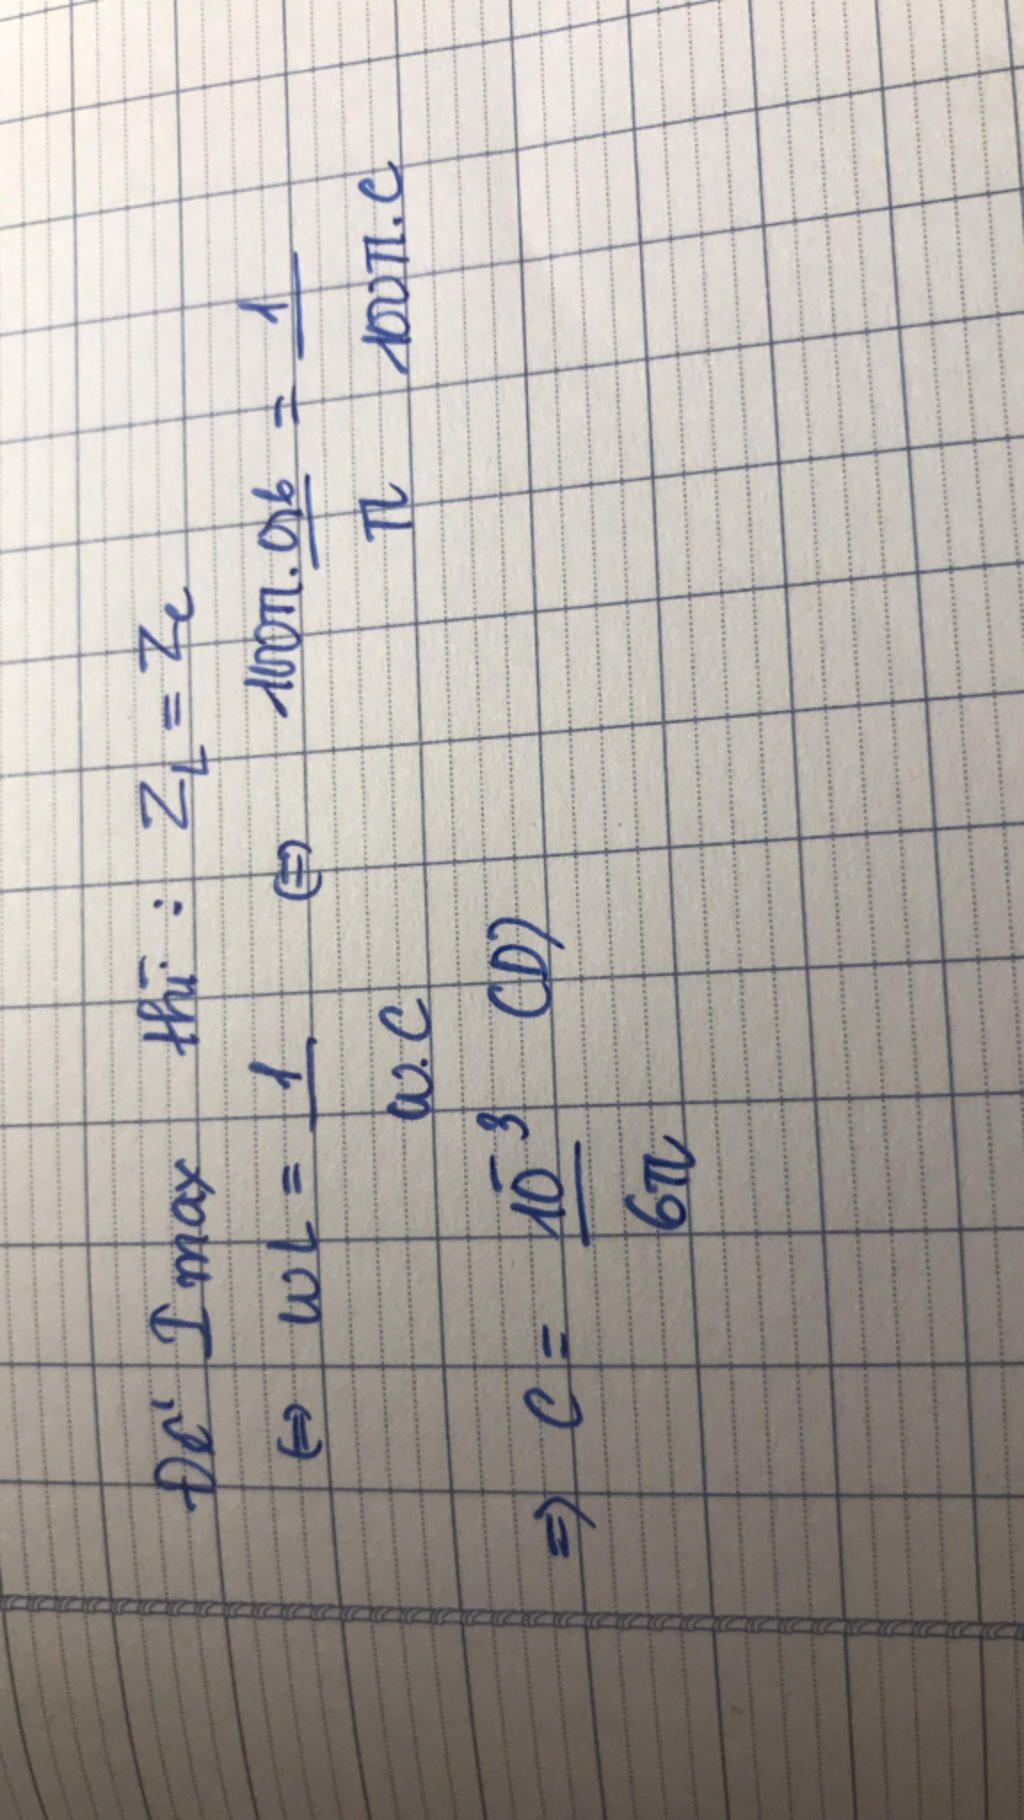 Để I max thì : Z_L = Z_C
⇔ ωL = 1/ω.C ⇔ 100π.0,6/π = 1/100π.C
⇒ C = 10^-3/6π (D)